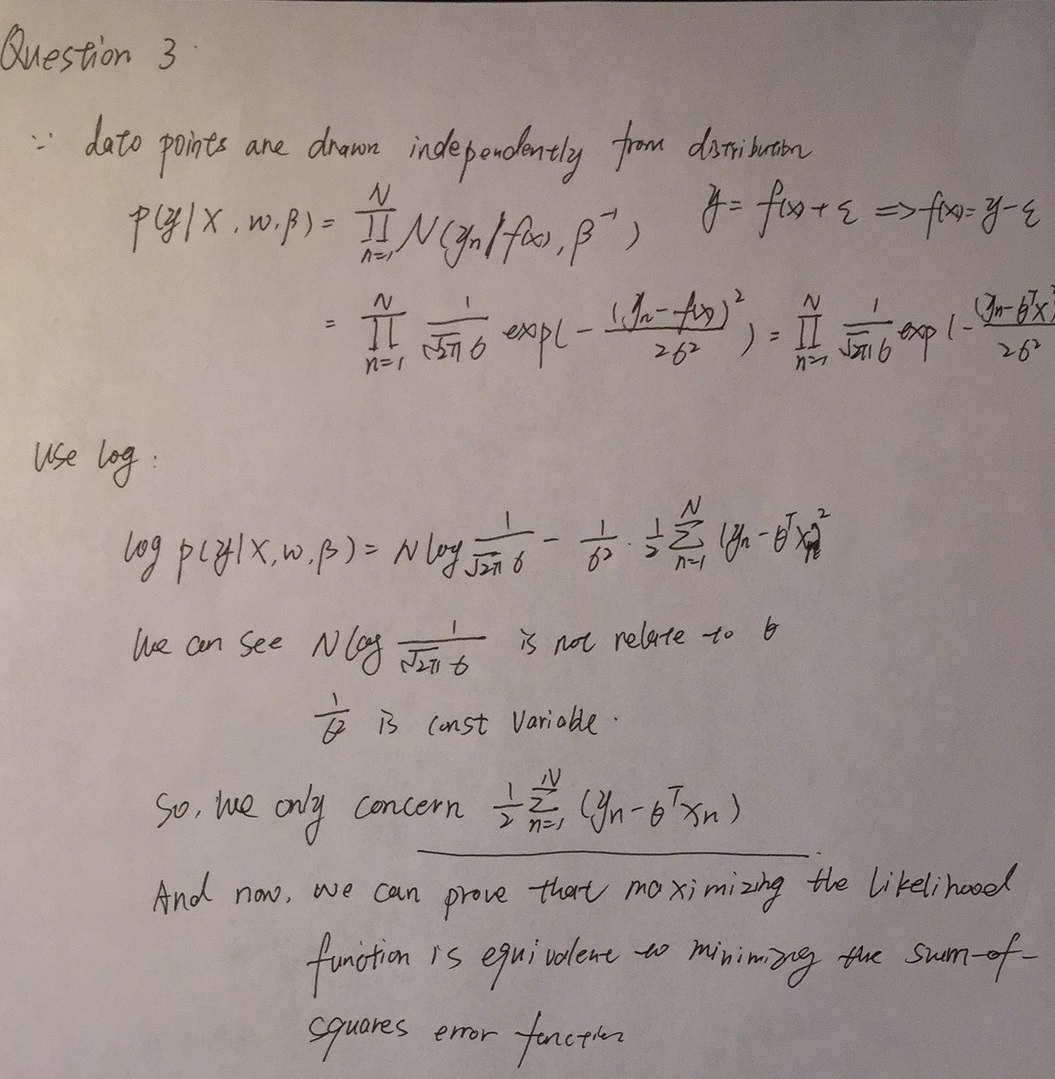 Question 3
∵ data points are drawn independently from distribution
p(y|X, w, β) = ∏_{n=1}^{N} N(yn|f(x), β^{-1})    y = f(x) + ε => f(x) = y - ε
= ∏_{n=1}^{N} 1/(√2π σ) exp(-(yn - f(x))²/2σ²) = ∏_{n=1}^{N} 1/(√2π σ) exp(-(yn - θ^T x)²/2σ²
Use log:
log p(y|X, w, β) = N log 1/(√2π σ) - 1/σ² · 1/2 ∑_{n=1}^{N} (yn - θ^T xn)²
We can see N log 1/(√2π σ) is not relate to θ
1/σ² is const variable.
So, we only concern 1/2 ∑_{n=1}^{N} (yn - θ^T xn)
And now, we can prove that maximizing the likelihood
function is equivalent to minimizing the sum-of-
squares error function